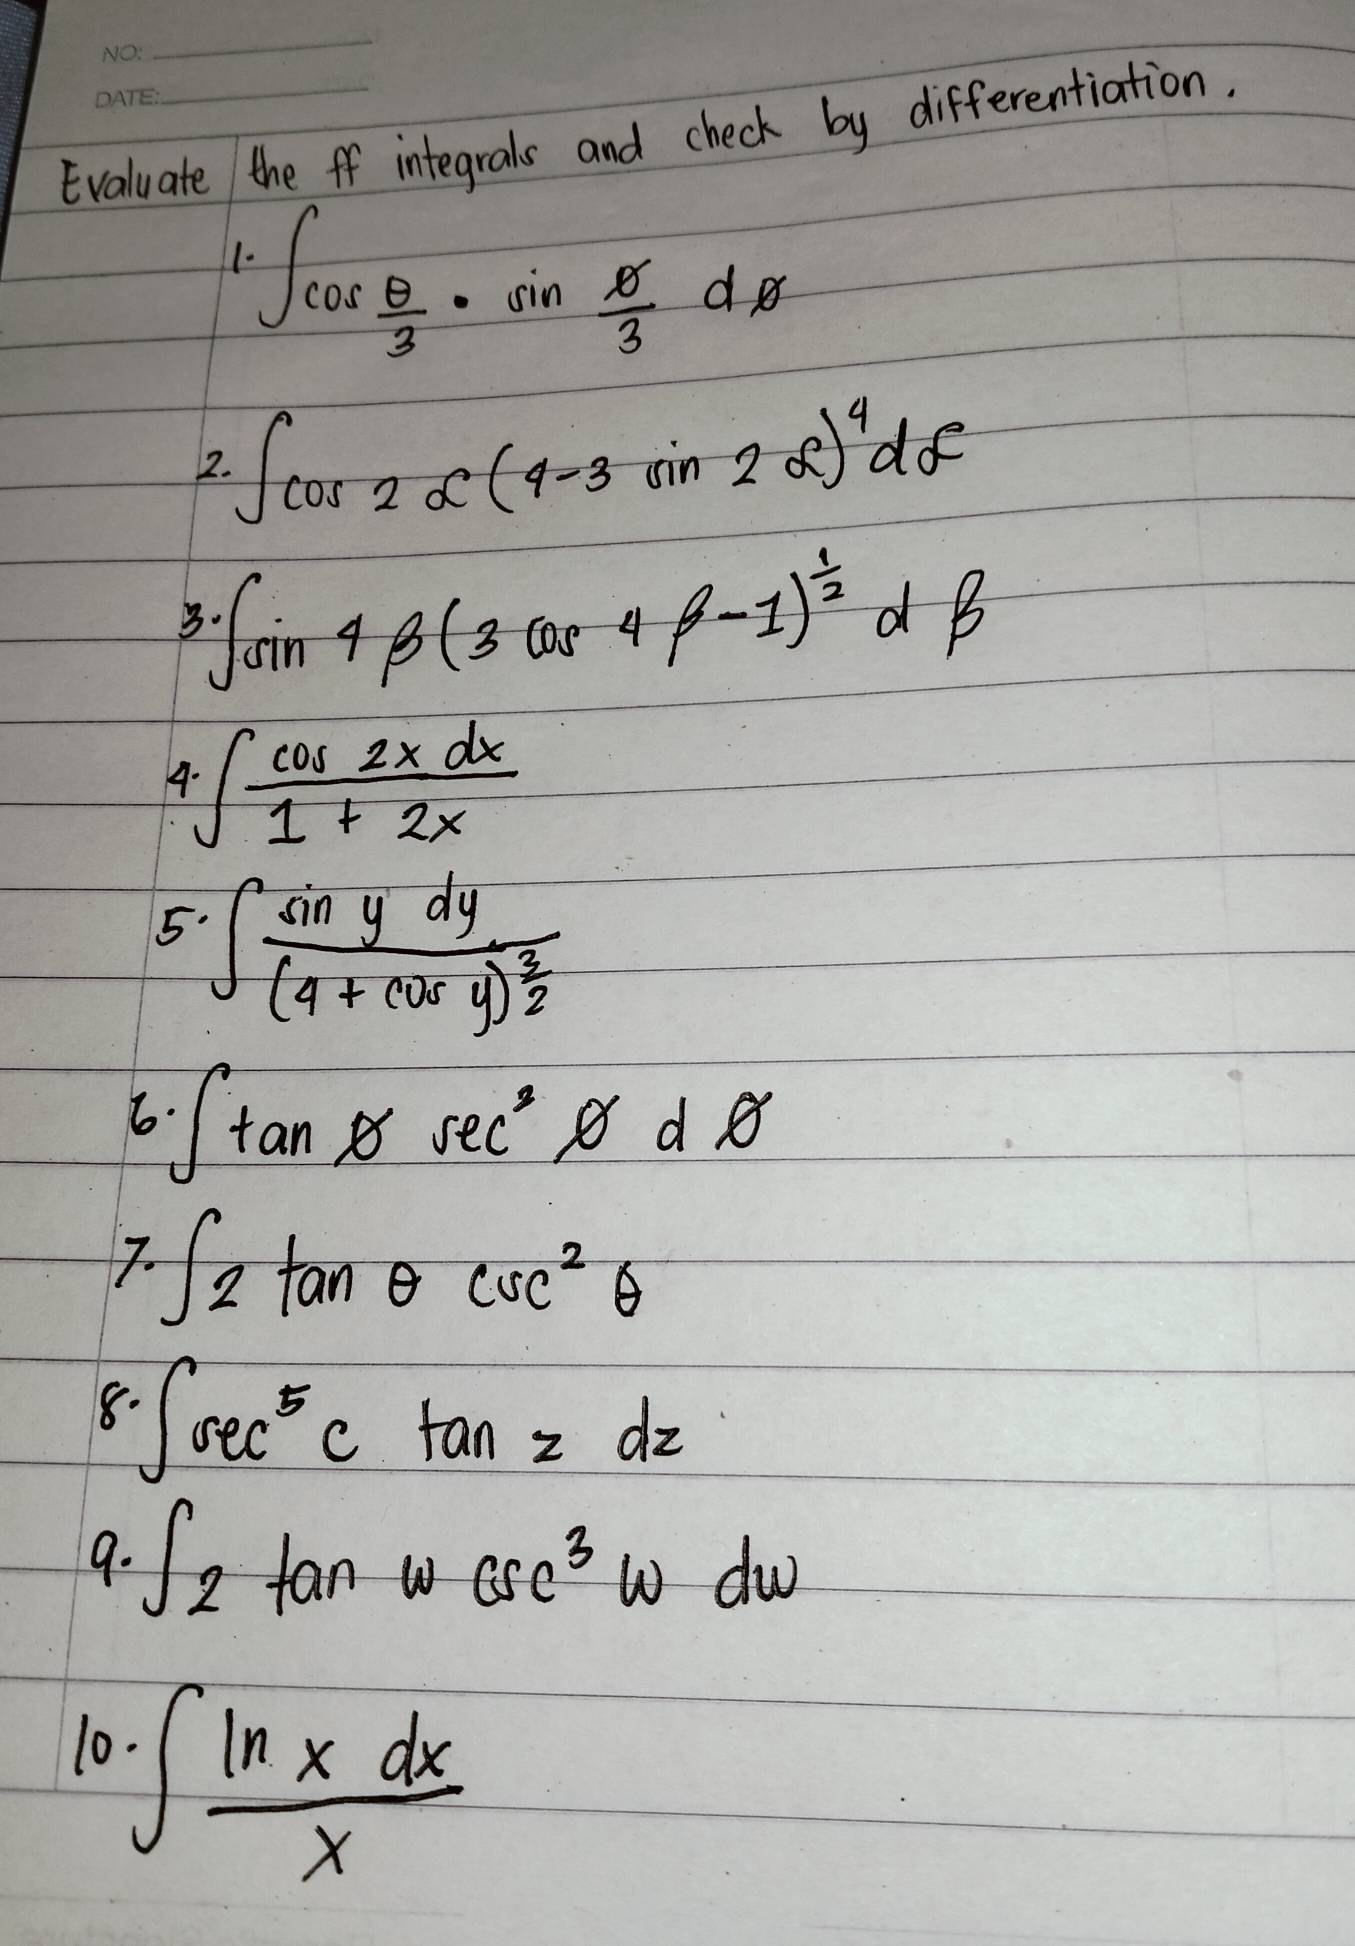 NO:
DATE:
Evaluate the ff integrals and check by differentiation.
1. ∫ cos θ/3 • sin ø/3 dø
2. ∫ cos 2 α (4-3 sin 2 α)⁴ dα
3. ∫ sin 4 β (3 cos 4 β-1)^½ d β
4. ∫ cos 2x dx / 1 + 2x
5. ∫ sin y dy / (4 + cos y)^3/2
6. ∫ tan ø sec² ø d ø
7. ∫ 2 tan θ csc² θ
8. ∫ sec⁵ c tan z dz
9. ∫ 2 tan w csc³ w dw
10. ∫ ln x dx / x